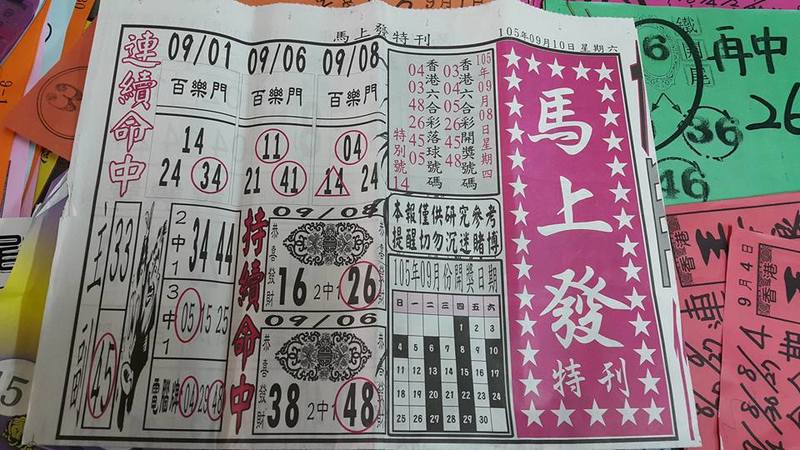 馬上發特刊
105年09月10日星期六
連續命中
09/01
百樂門
14
24 34
09/06
百樂門
11
21 41
09/08
百樂門
04
14 24
主 33
副 45
2中1 34 44
3中1 05 15 25
電腦牌 14 29 48
持續命中
09/08
恭喜發財
16 2中1 26
09/06
恭喜發財
38 2中1 48
105年09月08日星期四
香港六合彩開獎號碼
03 04 05 26 45 48
香港六合彩落球號碼
04 03 48 26 45 05
特別號 14
本報僅供研究參考
提醒切勿沉迷賭博
105年09月份開獎日期
日 一 二 三 四 五 六
1 2 3
4 5 6 7 8 9 10
11 12 13 14 15 16 17
18 19 20 21 22 23 24
25 26 27 28 29 30
馬上發
特刊
鐵
再中
26
36
46
9月4日
香港